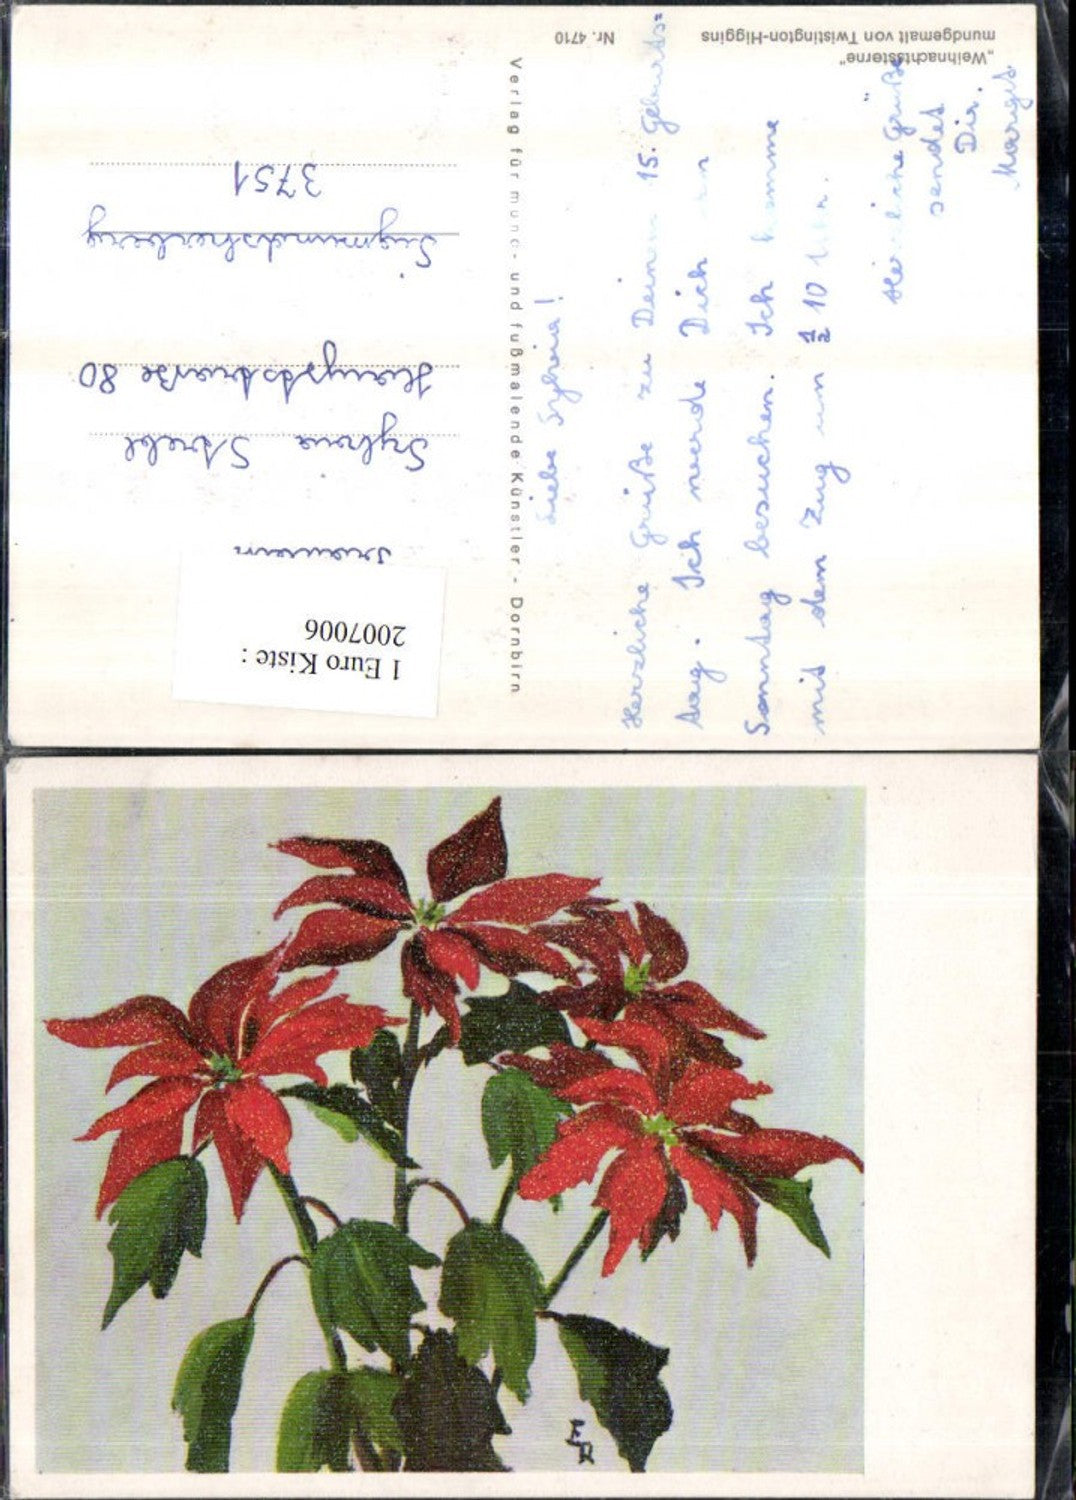 „Weihnachtssterne“
mundgemalt von Twistington-Higgins
Nr. 4710
Verlag für mund- und fußmalende Künstler - Dornbirn
Liebe Sylvia!
Herzliche Grüße zu Deinem 15. Geburts=
tag. Ich werde Dich am
Sonntag besuchen. Ich komme
mit dem Zug um ½ 10 Uhr.
Herzliche Grüße
sendet
Dir
Margit
Sylvia Strebl
Hauptstraße 80
Sigmundsherberg
3751
1 Euro Kiste :
2007006
ER